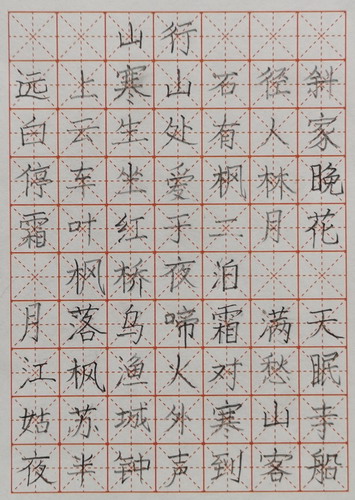 山行
远上寒山石径斜
白云生处有人家
停车坐爱枫林晚
霜叶红于二月花
枫桥夜泊
月落乌啼霜满天
江枫渔火对愁眠
姑苏城外寒山寺
夜半钟声到客船